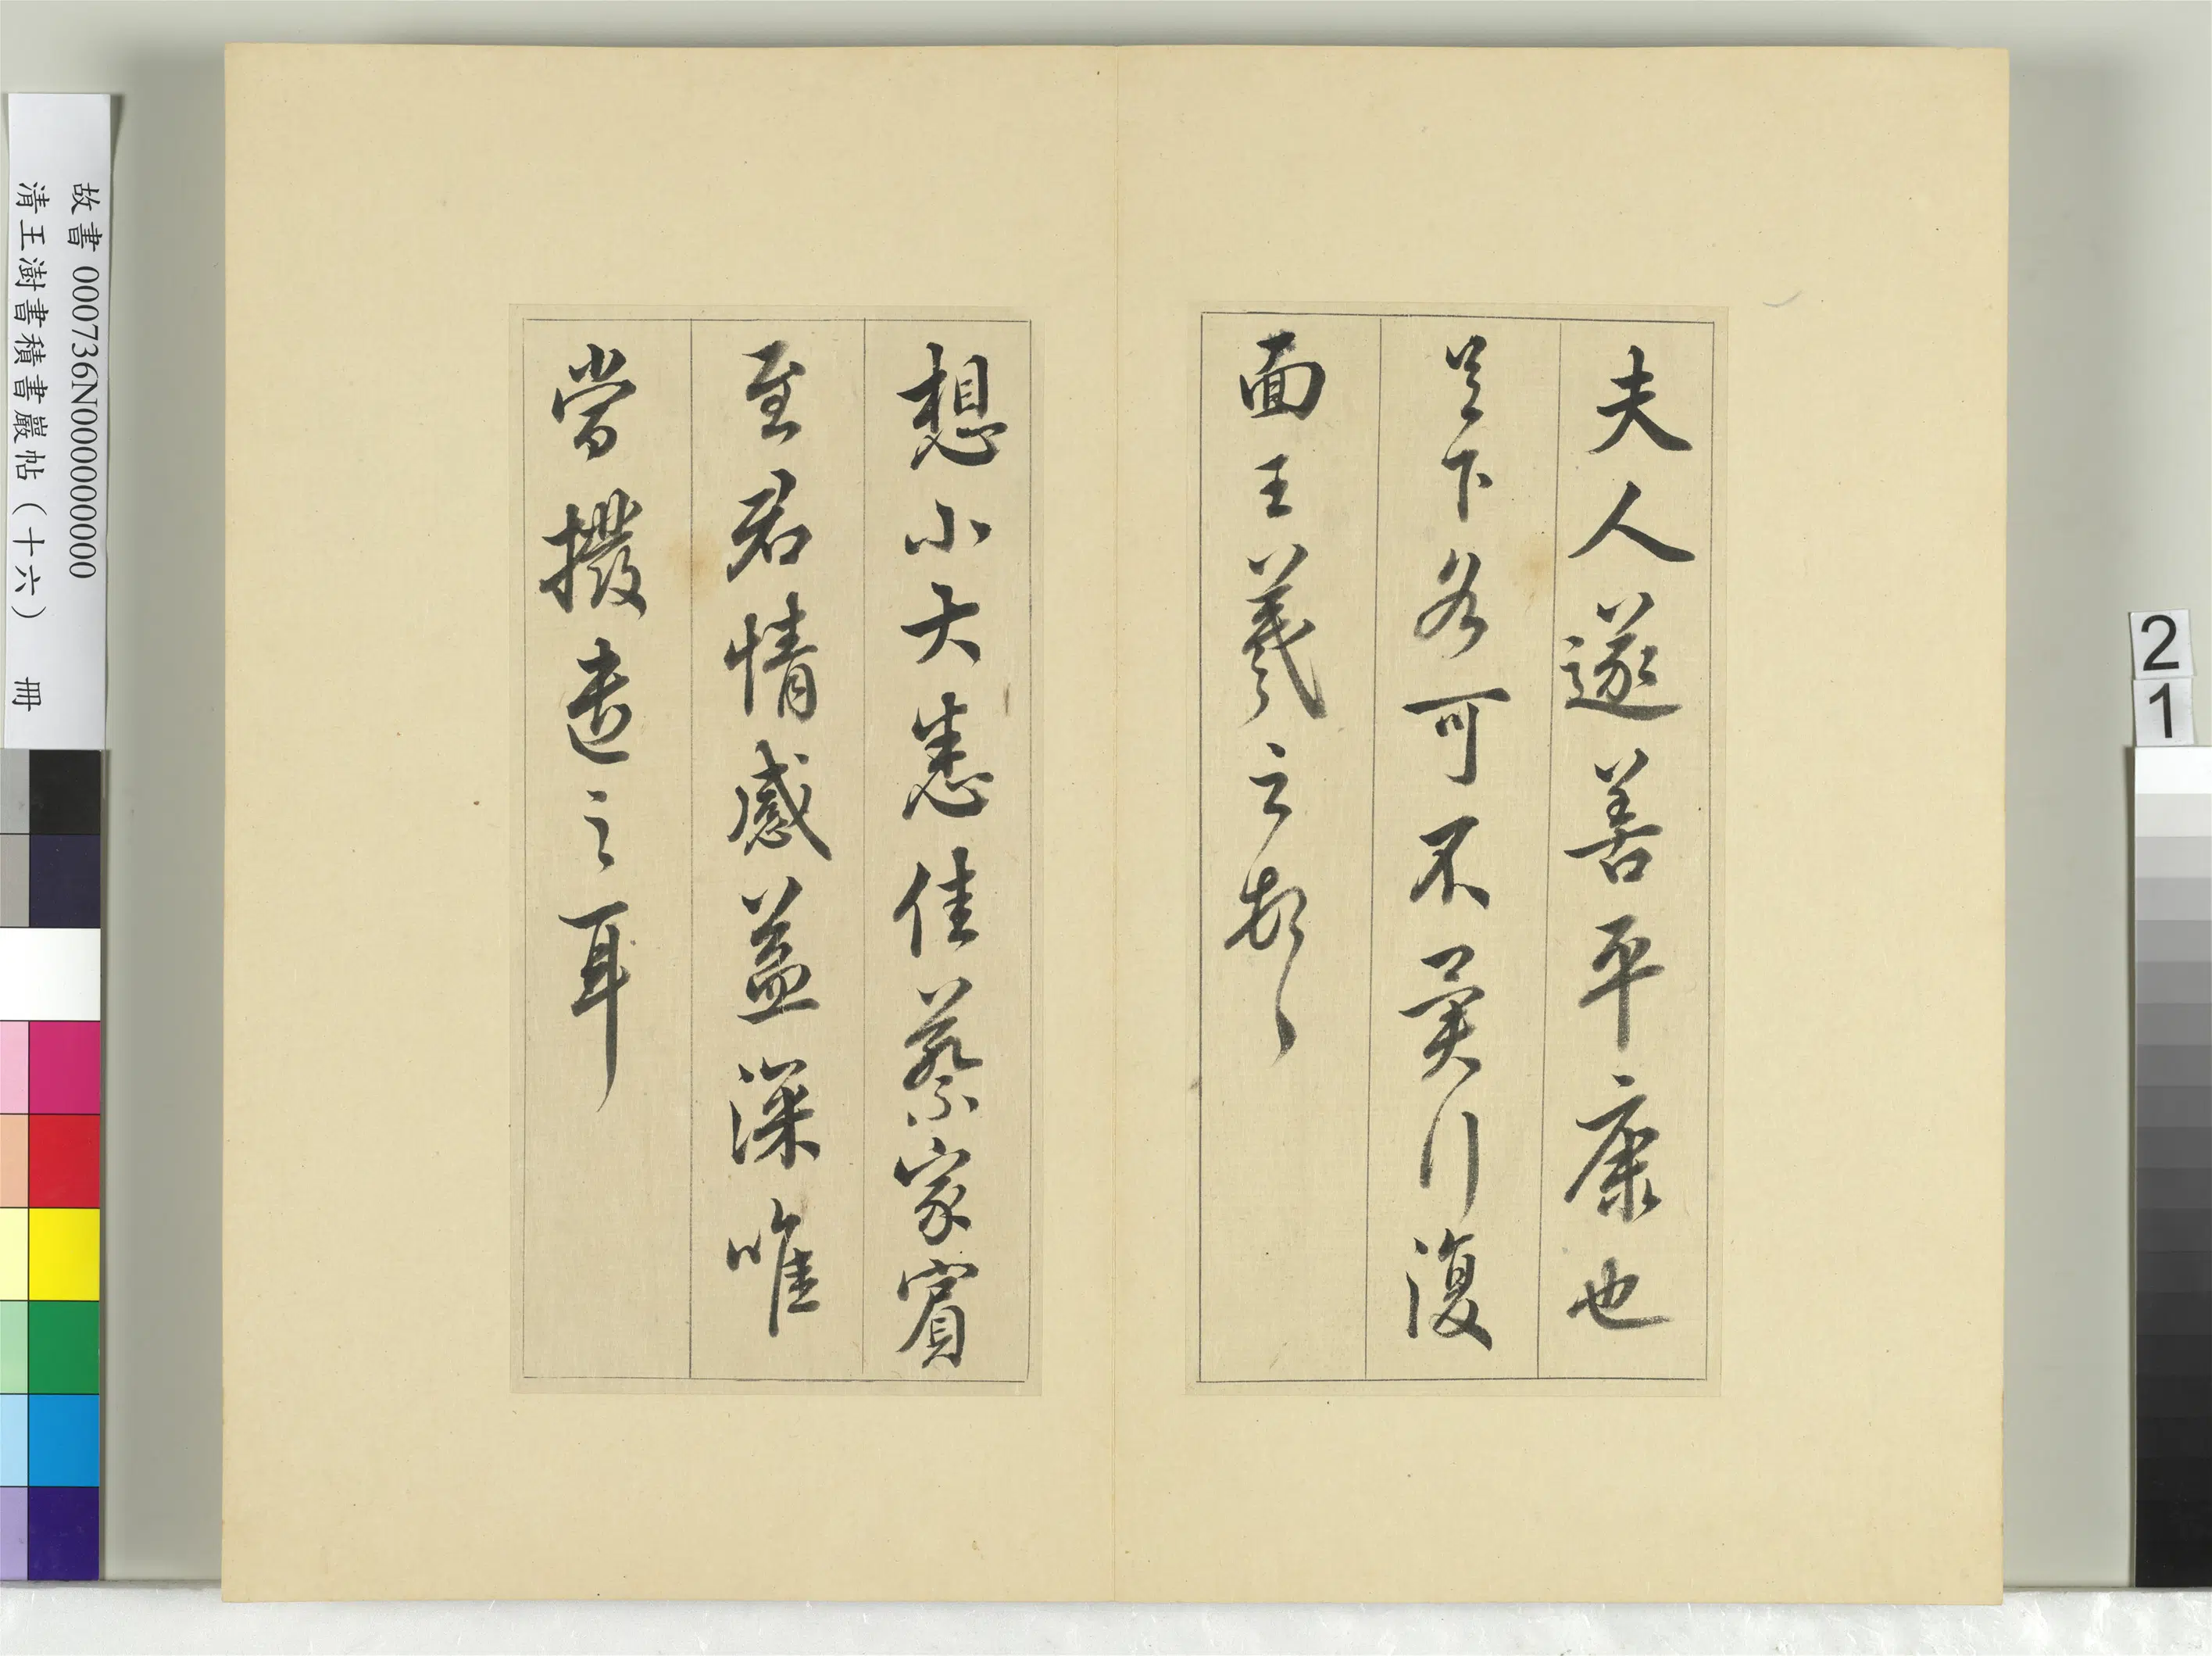 夫人遂善平康也
足下各可不冀行復
面王羲之頓首
想小大悉佳蔡家賓
至君情感益深唯
當撥遣之耳
故書 000736N000000000
清王澍書積書巖帖（十六） 冊
21